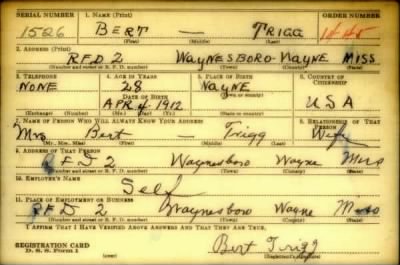 SERIAL NUMBER 1. NAME (Print) ORDER NUMBER
1526 BERT — TRIGG
2. ADDRESS (Print)
R.F.D 2 WAYNESBORO WAYNE MISS
(Number and street or R. F. D. number) (Town) (County) (State)
3. TELEPHONE 4. AGE IN YEARS 5. PLACE OF BIRTH 6. COUNTRY OF CITIZENSHIP
NONE 28 WAYNE
DATE OF BIRTH (Town or county) USA
APR 4 1912
7. NAME OF PERSON WHO WILL ALWAYS KNOW YOUR ADDRESS 8. RELATIONSHIP OF THAT PERSON
Mrs Bert — Trigg Wife
(Mr., Mrs., Miss)
9. ADDRESS OF THAT PERSON
R F D 2 Waynesboro Wayne Miss
(Number and street or R. F. D. number) (Town) (County) (State)
10. EMPLOYER'S NAME
Self
11. PLACE OF EMPLOYMENT OR BUSINESS
R.F.D 2 Waynesboro Wayne Miss
(Number and street or R. F. D. number) (Town) (County) (State)
I AFFIRM THAT I HAVE VERIFIED ABOVE ANSWERS AND THAT THEY ARE TRUE.
REGISTRATION CARD
D. S. S. Form 1 Bert Trigg
(Registrant's signature)